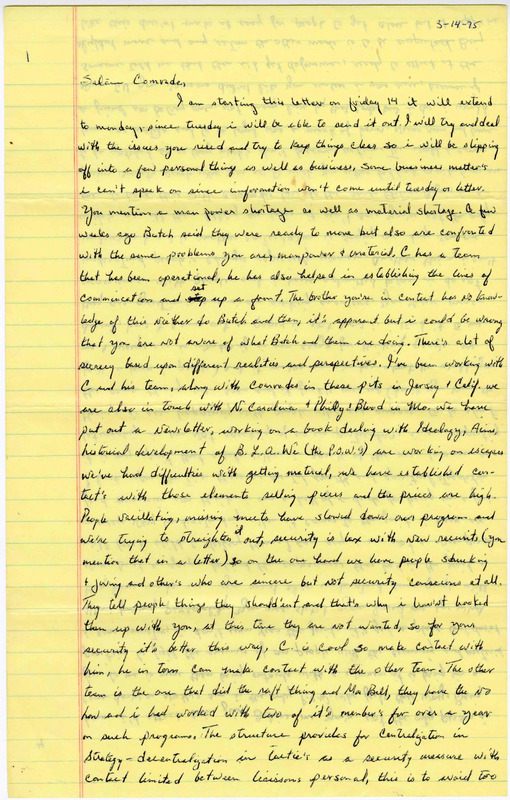 3-14-75
1
Salām Comrade,
I am starting this letter on friday 14 it will extend
to monday, since tuesday i will be able to send it out. I will try and deal
with the issues you rised and try to keep things clear so i will be slipping
off into a few personal things as well as business, some business matter's
i can't speak on since information won't come until tuesday or letter.
You mention a man power shortage as well as material shortage. A few
weeks ago Butch said they were ready to move but also are confronted
with the same problems you are, manpower & material, C has a team
that has been operational, he has also helped in establishing the lines of
commincation and set up a front. The brother you're in contact has no know-
ledge of this niether do Butch and them, it's apparent but i could be wrong
that you are not aware of what Butch and them are doing. There's alot of
secrecy based upon different realities and perspectives. I've been working with
C and his team, along with Comrades in these pits in Jersey & Calif. we
are also in touch with N. Carolina & Philly & Blood in Mo. We have
put out a Newsletter, working on a book dealing with Ideology, Aims,
historical development of B.L.A. We (the P.O.W.'s) are working on escapes
we've had difficulties with getting material, we have established con-
tact's with those elements selling pieces and the prices are high.
People vacillating, missing meets have slowed down our program and
we're trying to straighten it out, security is lax with new recruits (you
mention that in a letter) so on the one hand we have people shucking
& jiving and other's who are sincere but not security conscious at all.
They tell people things they should'ent and that's why i have'nt hooked
them up with you, at this time they are not wanted, so for your
security it's better this way, C. is cool so make contact with
him, he in torn can make contact with the other team. The other
team is the one that did the raft thing and Ma Bell, they have the no
how and i had worked with two of it's member's for over a year
on such programs. The structure provides for Centralization in
Strategy - decentralization in tactic's as a security measure with
contact limited between liaisons personal, this is to avoid too